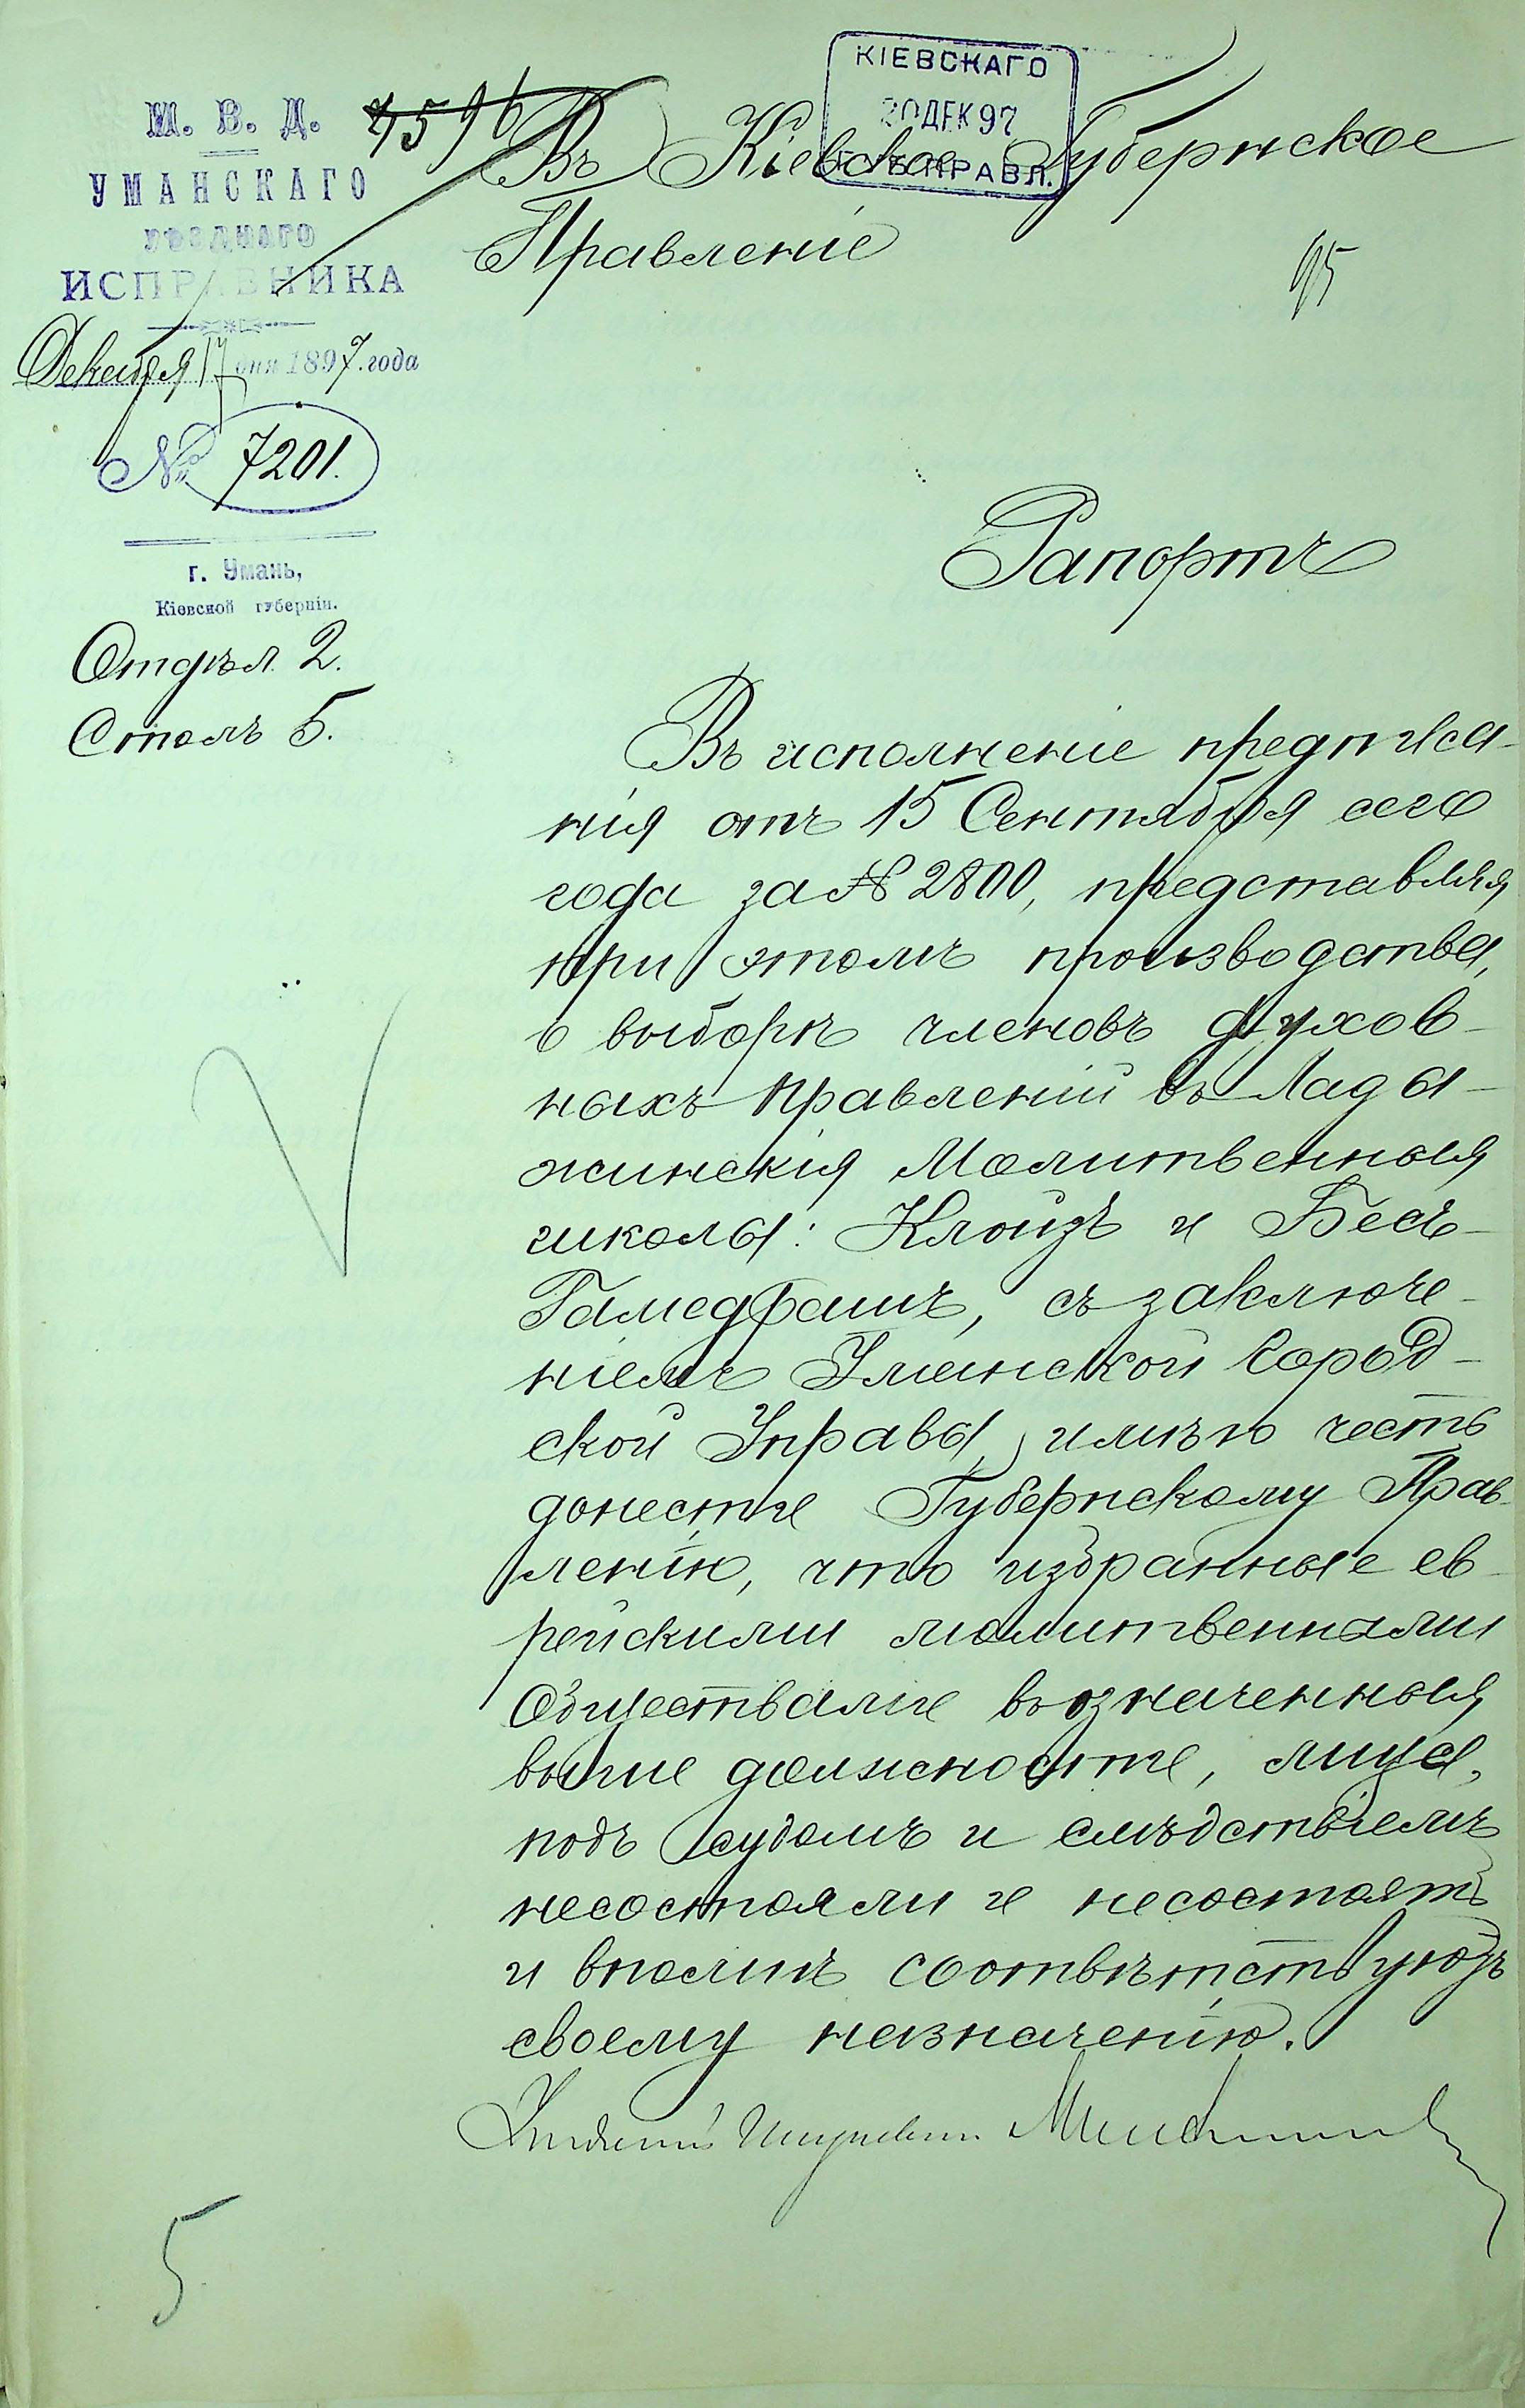 КІЕВСКАГО
20 ДЕК 97
ГУБ. ПРАВЛ.
М. В. Д.
УМАНСКАГО
УѢЗДНАГО
ИСПРАВНИКА
Декабря 17 дня 1897 года
№ 7201.
г. Умань,
Кіевской губерніи.
Отдѣл. 2.
Столъ 5.
4596
Въ Кіевское Губернское
Правленіе
95
Рапортъ
Въ исполненіе предписа-
нія отъ 15 Сентября сего
года за № 2800, представляя
при этомъ производства,
о выборѣ членовъ духов-
ныхъ правленій въ Лады-
жинскія Молитвенныя
школы: Клойзъ и Бесъ-
Гамедрашъ, съ заключе-
ніемъ Уманской Город-
ской Управы, имѣю честь
донести Губернскому Прав-
ленію, что избранные ев-
рейскими молитвенными
Обществами въ означенныя
выше должности, лица,
подъ судомъ и слѣдствіемъ
несостояли и несостоятъ
и вполнѣ соотвѣтствуютъ
своему назначенію.
Уѣздный Исправникъ
5